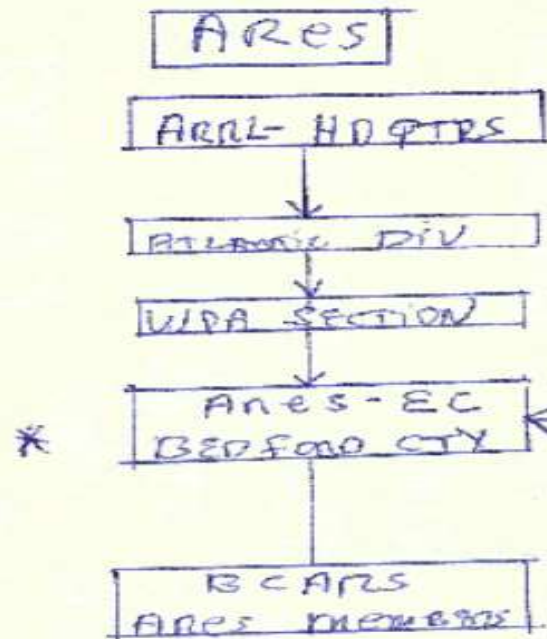 ARes
ARRL- HDQTRS
ATLANTIC DIV
WPA SECTION
* ARes-EC
BEDFORD CTY
BCARS
ARes MEMBERS